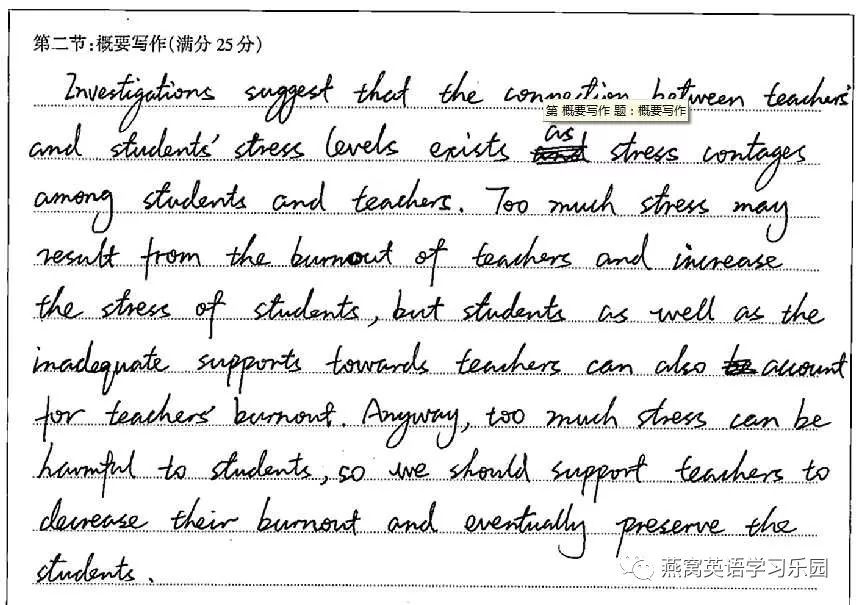 第二节:概要写作(满分25分)
Investigations suggest that the connection between teachers'
第 概要写作 题:概要写作
and students' stress levels exists as stress contages
among students and teachers. Too much stress may
result from the burnout of teachers and increase
the stress of students, but students as well as the
inadequate supports towards teachers can also account
for teachers' burnout. Anyway, too much stress can be
harmful to students, so we should support teachers to
decrease their burnout and eventually preserve the
students.
燕窝英语学习乐园